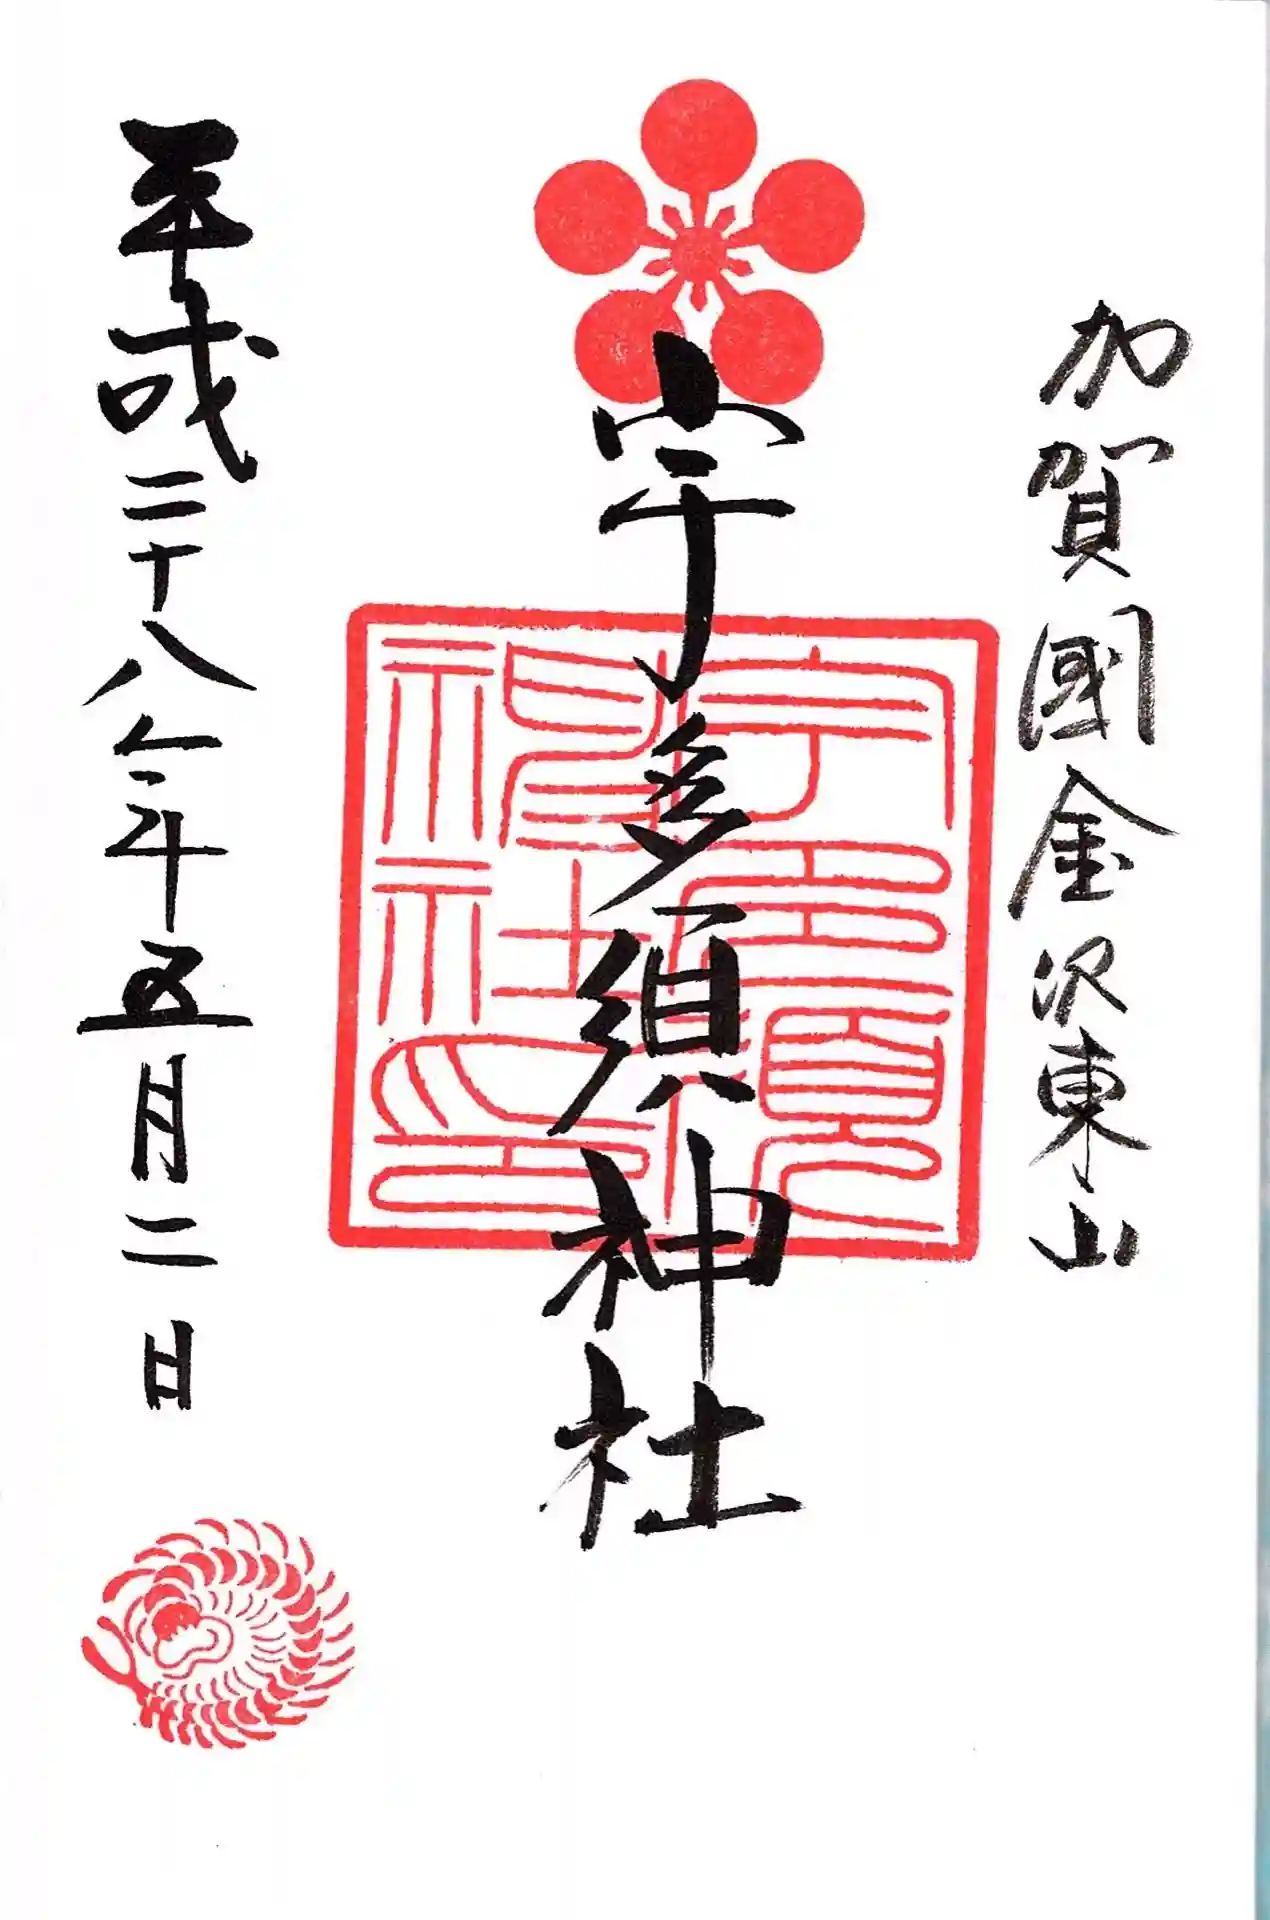 加賀國金沢東山
宇多須神社
宇多須
神社印
平成二十八年五月二日